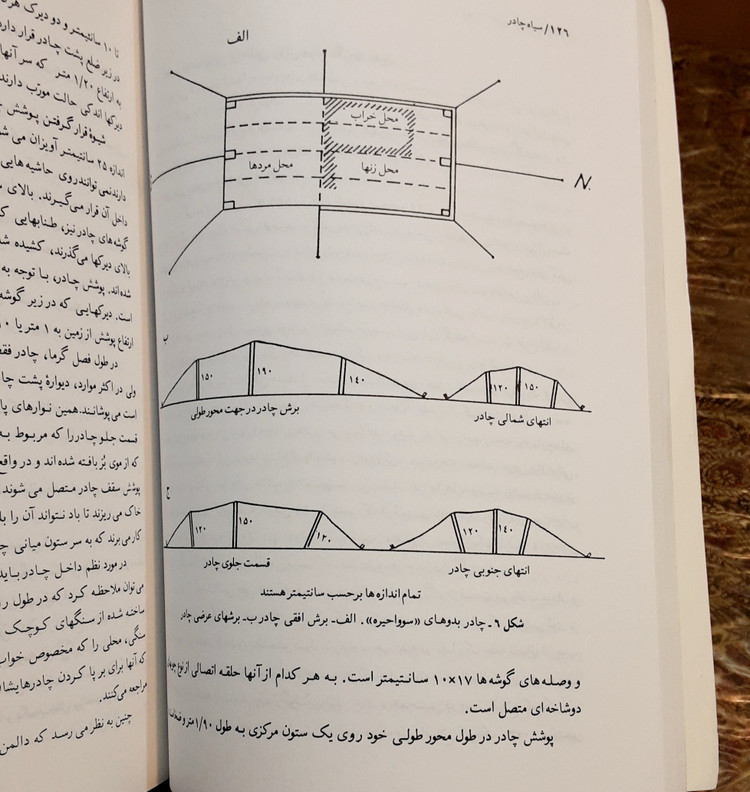 ۱۲۶/سیاه چادر
الف
محل خراب
محل مردها
محل زنها
N.
ب
۱۵۰
۱۹۰
۱۴۰
۱۲۰
۱۵۰
برش چادر در جهت محور طولی
انتهای شمالی چادر
ج
۱۲۰
۱۵۰
۱۲۰
۱۴۰
قسمت جلوی چادر
انتهای جنوبی چادر
تمام اندازه ها برحسب سانتیمتر هستند
شکل ۹ ـ چادر بدوهای «سوواحیره». الف ـ برش افقی چادر ب ـ برشهای عرضی چادر
و وصله های گوشه ها ۱۷×۱۰ سانتیمتر است. به هر کدام از آنها حلقه اتصالی از نوع
دوشاخه ای متصل است.
پوشش چادر در طول محور طولی خود روی یک ستون مرکزی به طول ۱/۹۰ متر و
تا ۱۰ سانتیمتر و دو دیرک
در زیر ضلع پشت چادر قرار دارد
به ارتفاع ۱/۲۰ متر که سر آنها
دیرکها اندکی حالت مورّب دارند
شیوۀ قرار گرفتن پوشش
اندازه ۲۵ سانتیمتر آویزان می
دارند نمی توانند روی حاشیه هایی
داخل آن قرار می گیرند. بالای
گوشه های چادر نیز، طنابهایی
بالای دیرکها می گذرند، کشیده
شده اند. پوشش چادر، با توجه به
است. دیرکهایی که در زیر گوشه
ارتفاع پوشش از زمین به ۱ متر یا
در طول فصل گرما، چادر فقط
ولی در اکثر موارد، دیوارۀ پشت
است می پوشانند. همین نوارهای
قسمت جلو چادر را که مربوط به
که از موی بُز بافته شده اند و در واقع
پوشش سقف چادر متصل می شوند
خاک می ریزند تا باد نتواند آن را
کار می برند که به سر ستون میانی
در مورد نظم داخل چادر باید
می توان ملاحظه کرد که در طول
ساخته شده از سنگهای کوچک
سنگی، محلی را که مخصوص خواب
که آنها برای بر پا کردن چادرهایشان
مراجعه می کنند.
چنین به نظر می رسد که دالمن